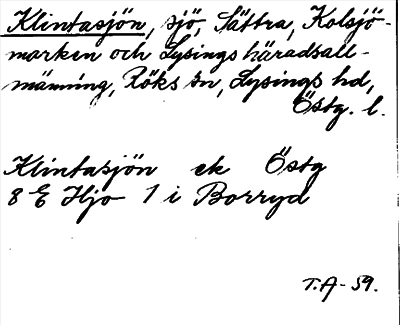 Klintasjön, sjö, Sättra, Kolsjö-
marken och Lysings häradsall-
männing, Röks sn, Lysings hd,
Östg. l.
Klintasjön ek Östg
8 E Hjo 1 i Borryd
T.A - 59.